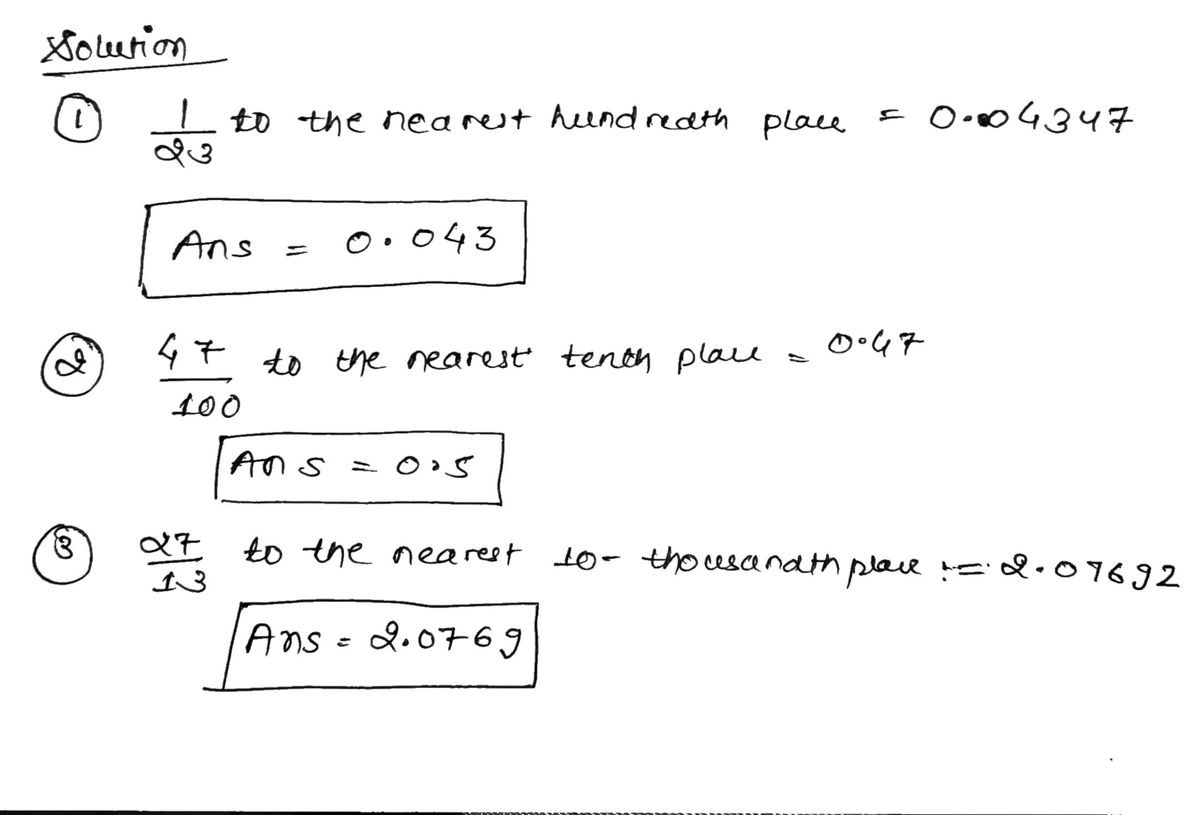 Solution
① 1/23 to the nearest hundredth place = 0.04347
Ans = 0.043
② 47/100 to the nearest tenth place = 0.47
Ans = 0.5
③ 27/13 to the nearest 10-thousandth place := 2.07692
Ans = 2.0769